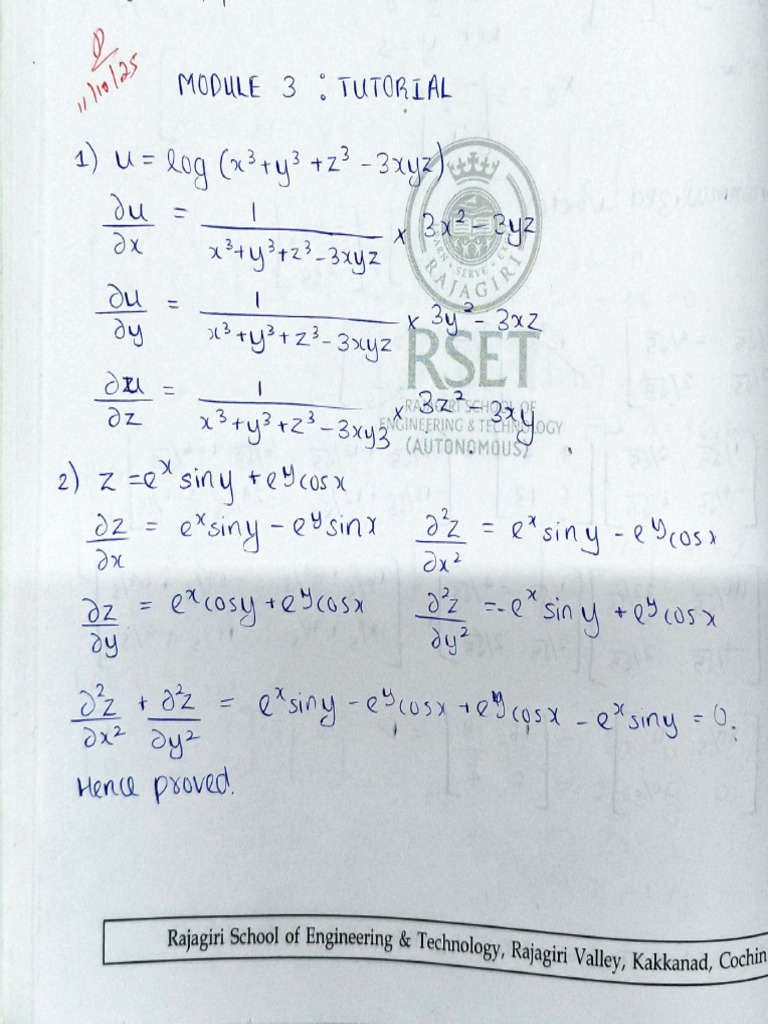 11/10/25
MODULE 3 : TUTORIAL
1) u = log (x³+y³+z³-3xyz)
∂u/∂x = 1/(x³+y³+z³-3xyz) × 3x²-3yz
∂u/∂y = 1/(x³+y³+z³-3xyz) × 3y²-3xz
∂u/∂z = 1/(x³+y³+z³-3xyz) × 3z²-3xy
RAJAGIRI
RSET
RAJAGIRI SCHOOL OF
ENGINEERING & TECHNOLOGY
(AUTONOMOUS)
2) z = eˣ siny + eʸ cosx
∂z/∂x = eˣ siny - eʸ sinx ∂²z/∂x² = eˣ siny - eʸ cosx
∂z/∂y = eˣ cosy + eʸ cosx ∂²z/∂y² = -eˣ siny + eʸ cosx
∂²z/∂x² + ∂²z/∂y² = eˣ siny - eʸ cosx + eʸ cosx - eˣ siny = 0.
Hence proved.
Rajagiri School of Engineering & Technology, Rajagiri Valley, Kakkanad, Cochin